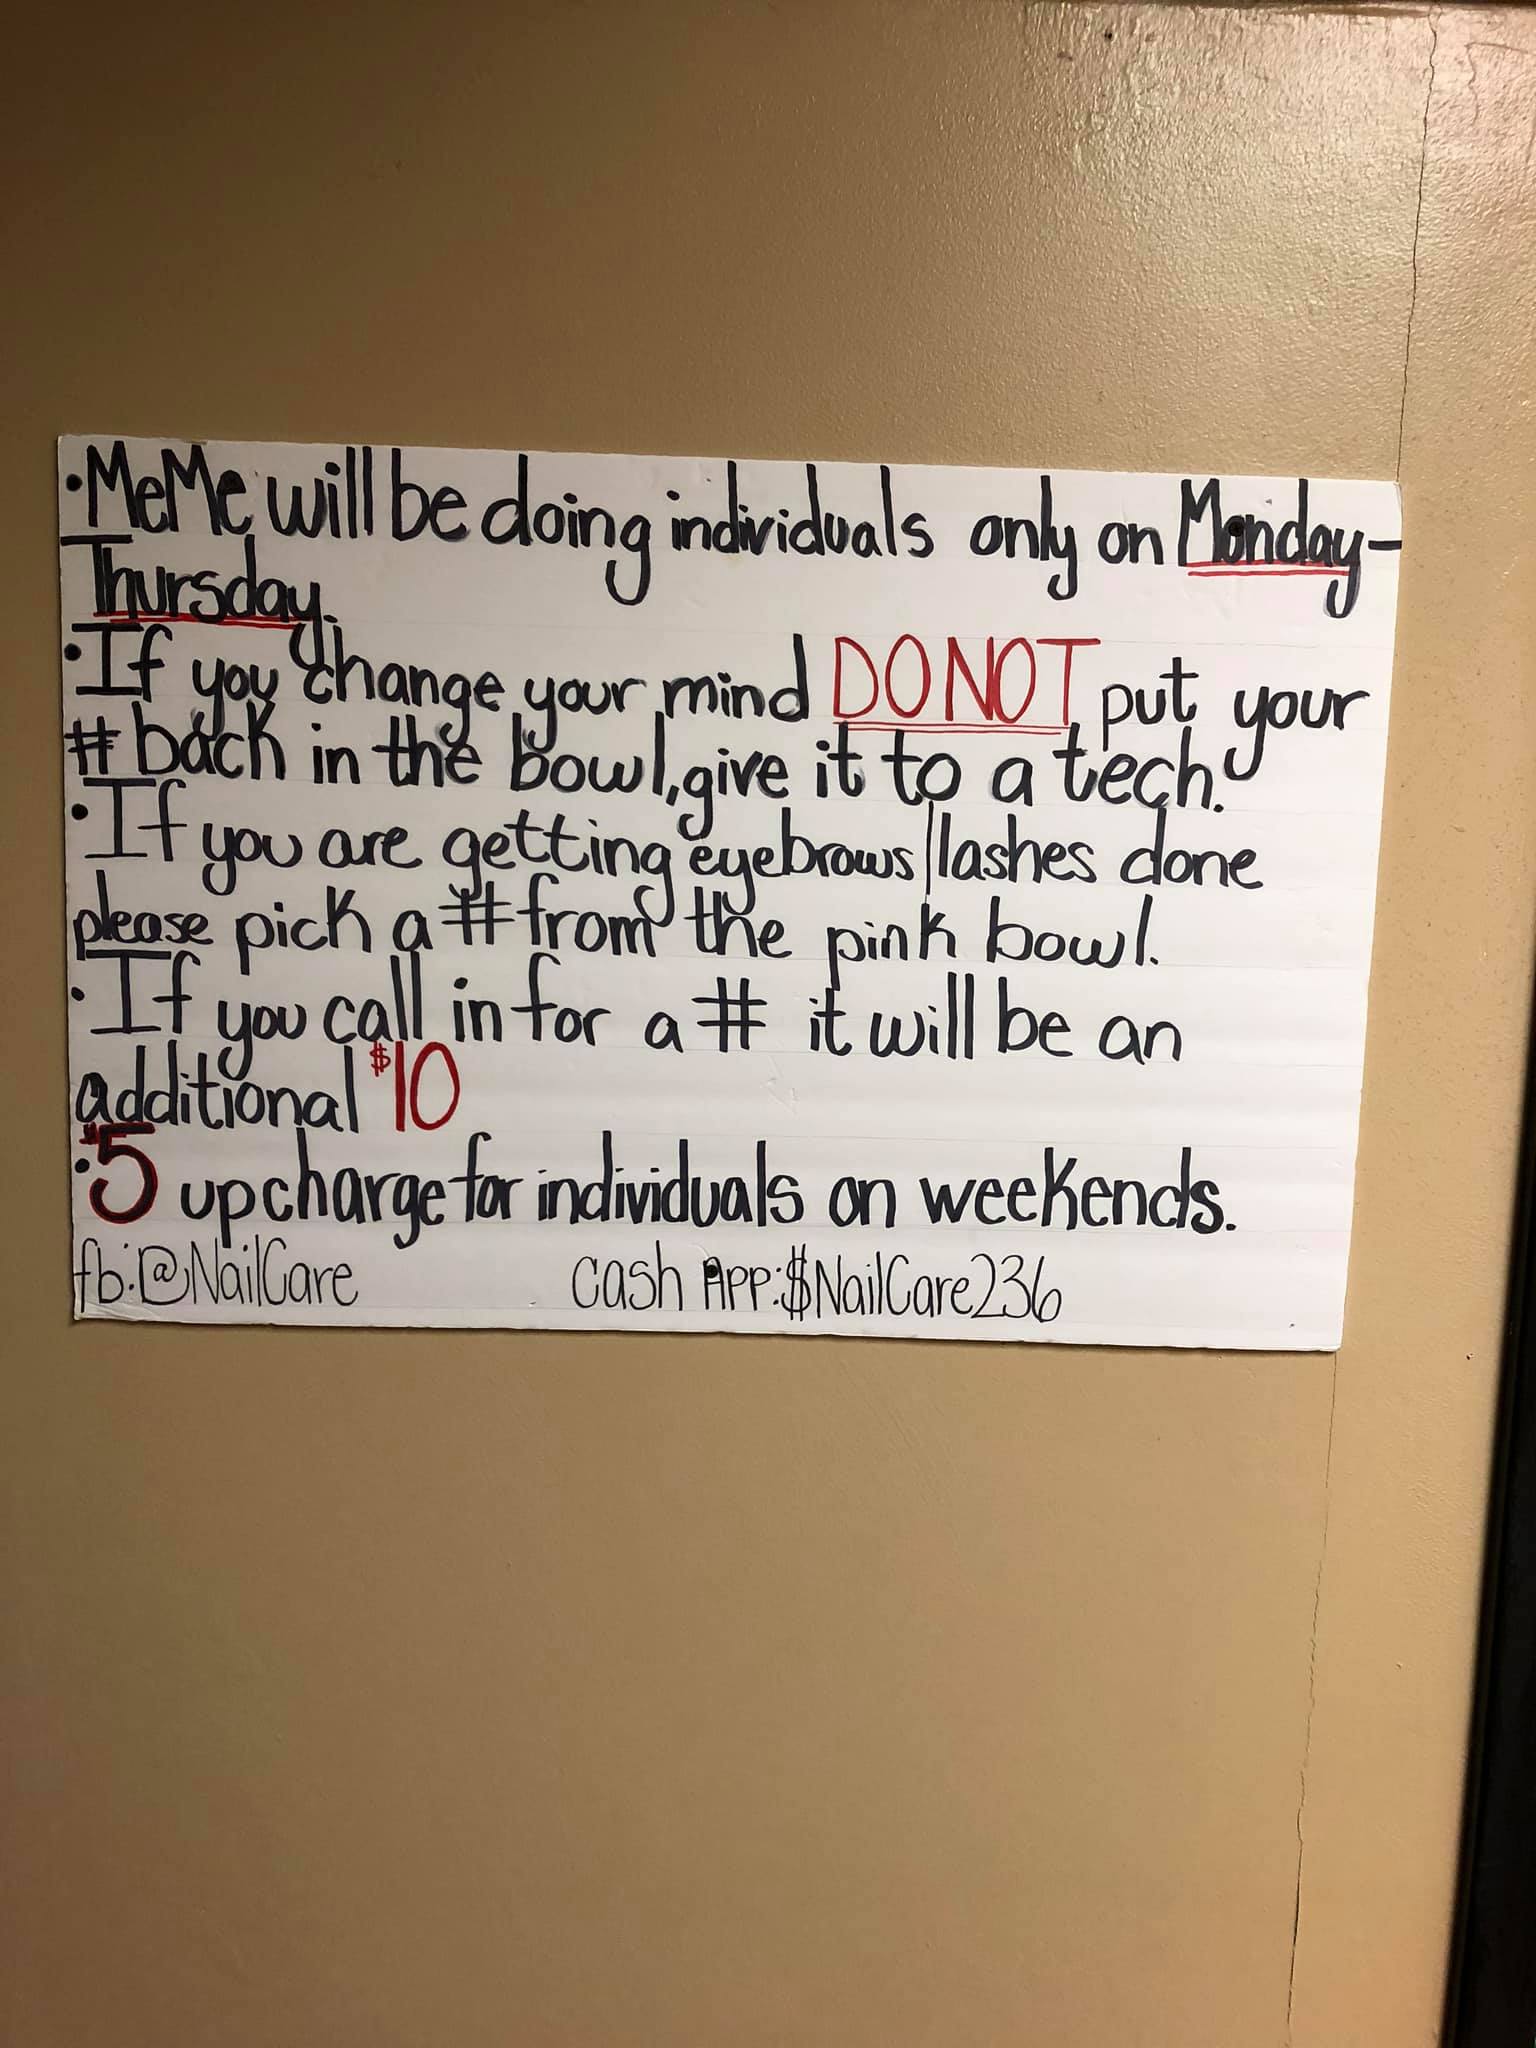 •MeMe will be doing individuals only on Monday-
Thursday.
•If you change your mind DO NOT put your
# back in the bowl, give it to a tech.
•If you are getting eyebrows|lashes done
please pick a # from the pink bowl.
•If you call in for a # it will be an
additional $10
•$5 upcharge for individuals on weekends.
fb:@NailCare cash App:$NailCare236